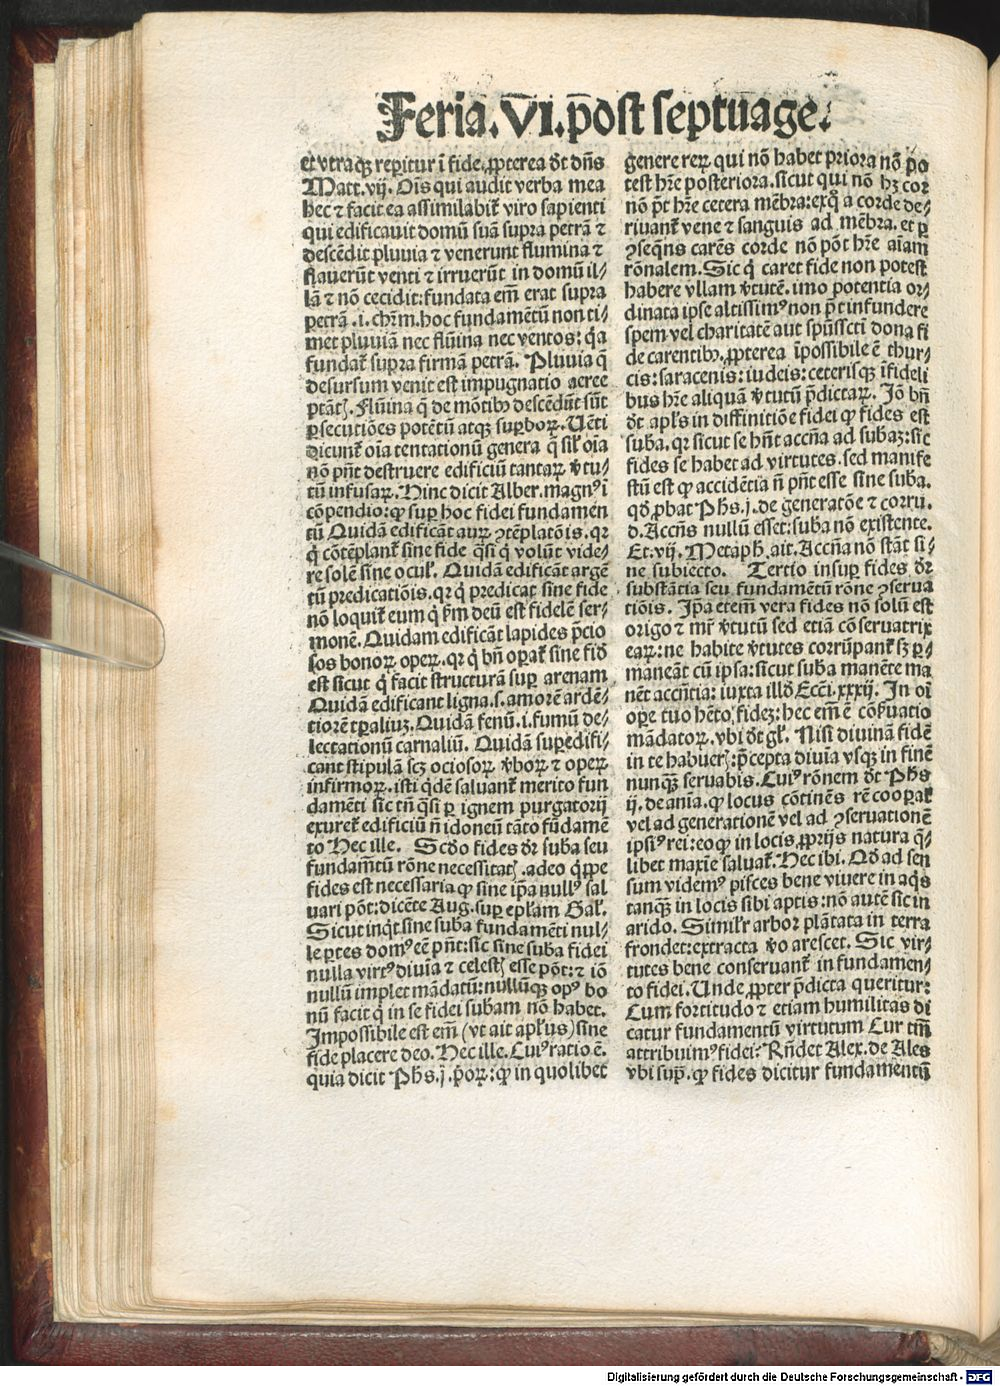 Feria.VI.p̄ost septuage.
et vtraqꝫ reꝑitur ī fide.ꝓpterea dr̄t dn̄s
Matt.vij. Ois qui audit verba mea
hec ⁊ facit ea assimilabit̄ viro sapienti
qui edificauit domū suā supra petrā ⁊
descēdit pluuia ⁊ venerunt flumina ⁊
flauerūt venti ⁊ irruerūt in domū il⸗
lā ⁊ nō cecidit:fundata em̄ erat supra
petrā.i.chr̄m.hoc fundamētū non ti⸗
met pluuiā nec flūina nec ventos: q̄a
fundat̄ supra firmā petrā. Pluuia q̄
desursum venit est impugnatio aeree
ptāt. Flūina q̄ de mōtibꝰ descēdūt sūt
ꝑsecutiōes potētū atqꝫ suꝑboꝝ. Uēti
dicunt̄ oīa tentationū genera q̄ sil̄ oīa
nō pn̄t destruere edificiū tantaꝝ v̄tu⸗
tū infusaꝝ. Hinc dicit Alber.magnꝰ ī
cōpendio:ꝙ suꝑ hoc fidei fundamen
tū Quidā edificāt auꝝ ꝯtēplatōis.qꝛ
q̇ cōtēplant̄ sine fide q̄si q̇ volūt vide⸗
re solē sine ocul̄. Quidā edificāt argē
tū predicatiōis.qꝛ q̇ predicat sine fide
nō loquit̄ eum q̇ ẜm deū est fidelē ser⸗
monē. Quidam edificāt lapides p̄cio
sos bonoꝝ oꝑeꝝ.qꝛ q̇ bn̄ oꝑat̄ sine fid̄
est sicut q̇ facit structurā suꝑ arenam
Quidā edificant ligna.s.amorē ardē⸗
tiorē tꝑaliuꝫ.Quidā fenū.i.fumū de⸗
lectationū carnaliū. Quidā suꝑedifi⸗
cant stipulā scꝫ ociosoꝝ v̄boꝝ ⁊ opeꝝ
infirmoꝝ.isti q̇dē saluant̄ merito fun
damēti sic tn̄ q̄si ꝑ ignem purgatorij
exuret̄ edificiū n̄ idoneū tāto fūdamē
to Hec ille. Scd̄o fides dr̄ suba seu
fundam̄tū rōne necessitat̄.adeo q̇ppe
fides est necessaria ꝙ sine ip̄a nullꝰ sal
uari pōt:dicēte Aug.suꝑ epl̄am Gal̄.
Sicut inq̇t sine suba fundamēti nul⸗
le ꝑtes domꝰ eē pn̄t:sic sine suba fidei
nulla virtꝰ diuīa ⁊ celest̄ esse pōt:⁊ iō
nullū implet mādatū:nullūqꝫ opꝰ bo
nū facit q̇ in se fidei subam nō habet.
Impossibile est em̄ (vt ait apl̄us) sine
fide placere deo. Hec ille. Cuiꝰ ratio ē.
quia dicit Ph̄s.j.p̄oꝝ:ꝙ in quolibet
genere reꝝ qui nō habet priora nō po
test hr̄e posteriora.sicut qui nō hꝫ cor
nō pōt hr̄e cetera mēbra:exq̊ a corde de⸗
riuant̄ vene ⁊ sanguis ad mēbra.et ꝑ
ꝯseq̄ns carēs corde nō pōt hr̄e aīam
rōnalem. Sic q̇ caret fide non potest
habere vllam v̄tutē.imo potentia or⸗
dinata ipse altissimꝰ non pōt infundere
spem vel charitatē aut spūssctī dona fi
de carentibꝰ.ꝓpterea īpossibile ē thur⸗
cis:saracenis:iudeis:ceterisqꝫ īfideli
bus hr̄e aliquā v̄tutū p̄dictaꝝ. Iō bn̄
dt̄ apl̄s in diffinitiōe fidei ꝙ fides est
suba.qꝛ sicut se hn̄t accn̄a ad subaꝫ:sic
fides se habet ad virtutes.sed manife
stū est ꝙ accidētia n̄ pn̄t esse sine suba.
qd̄ ꝓbat Ph̄s.j.de generatōe ⁊ corru.
d.Accn̄s nullū esset:suba nō existente.
Et.vij. Metaph̄.ait.Accn̄a nō stāt si⸗
ne subiecto. Tertio insuꝑ fides dr̄
substātia seu fundamētū rōne ꝯserua
tiōis. Ip̄a etem̄ vera fides nō solū est
origo ⁊ mr̄ v̄tutū sed etiā cōseruatrix
eaꝝ:ne habite v̄tutes corrūpant̄ sꝫ ꝑ⸗
maneāt cū ipsa:sicut suba manēte ma
nēt accn̄tia: iuxta illd̄ Ecci.xxxij. In oī
oꝑe tuo hēto fideꝫ:hec em̄ ē cōẜuatio
mādatoꝝ.vbi dt̄ gl̄. Nisi diuinā fidē
in te habuer̄:p̄cepta diuīa vsqꝫ in finē
nunqꝫ seruabis.Cuiꝰ rōnem dt̄ Ph̄s
ij.de anīa.ꝙ locus cōtinēs rē cooꝑat̄
vel ad generationē vel ad ꝯseruationē
ipsiꝰ rei:eo ꝙ in locis ꝓprijs natura q̄⸗
libet maxīe saluat̄.Hec ibi. Qd̄ ad sen
sum videmꝰ pisces bene viuere in aq̄s
tanqꝫ in locis sibi aptis:nō autē sic in
arido. Simil̄r arbor plātata in terra
frondet:extracta v̄o arescet. Sic vir⸗
tutes bene conseruant̄ in fundamen⸗
to fidei.Unde ꝓpter p̄dicta queritur:
Cum fortitudo ⁊ etiam humilitas di
catur fundamentū virtutum Cur tm̄
attribuimꝰ fidei? Rn̄det Alex.de Ales
vbi suꝑ.ꝙ fides dicitur fundamentū
Digitalisierung gefördert durch die Deutsche Forschungsgemeinschaft - DFG